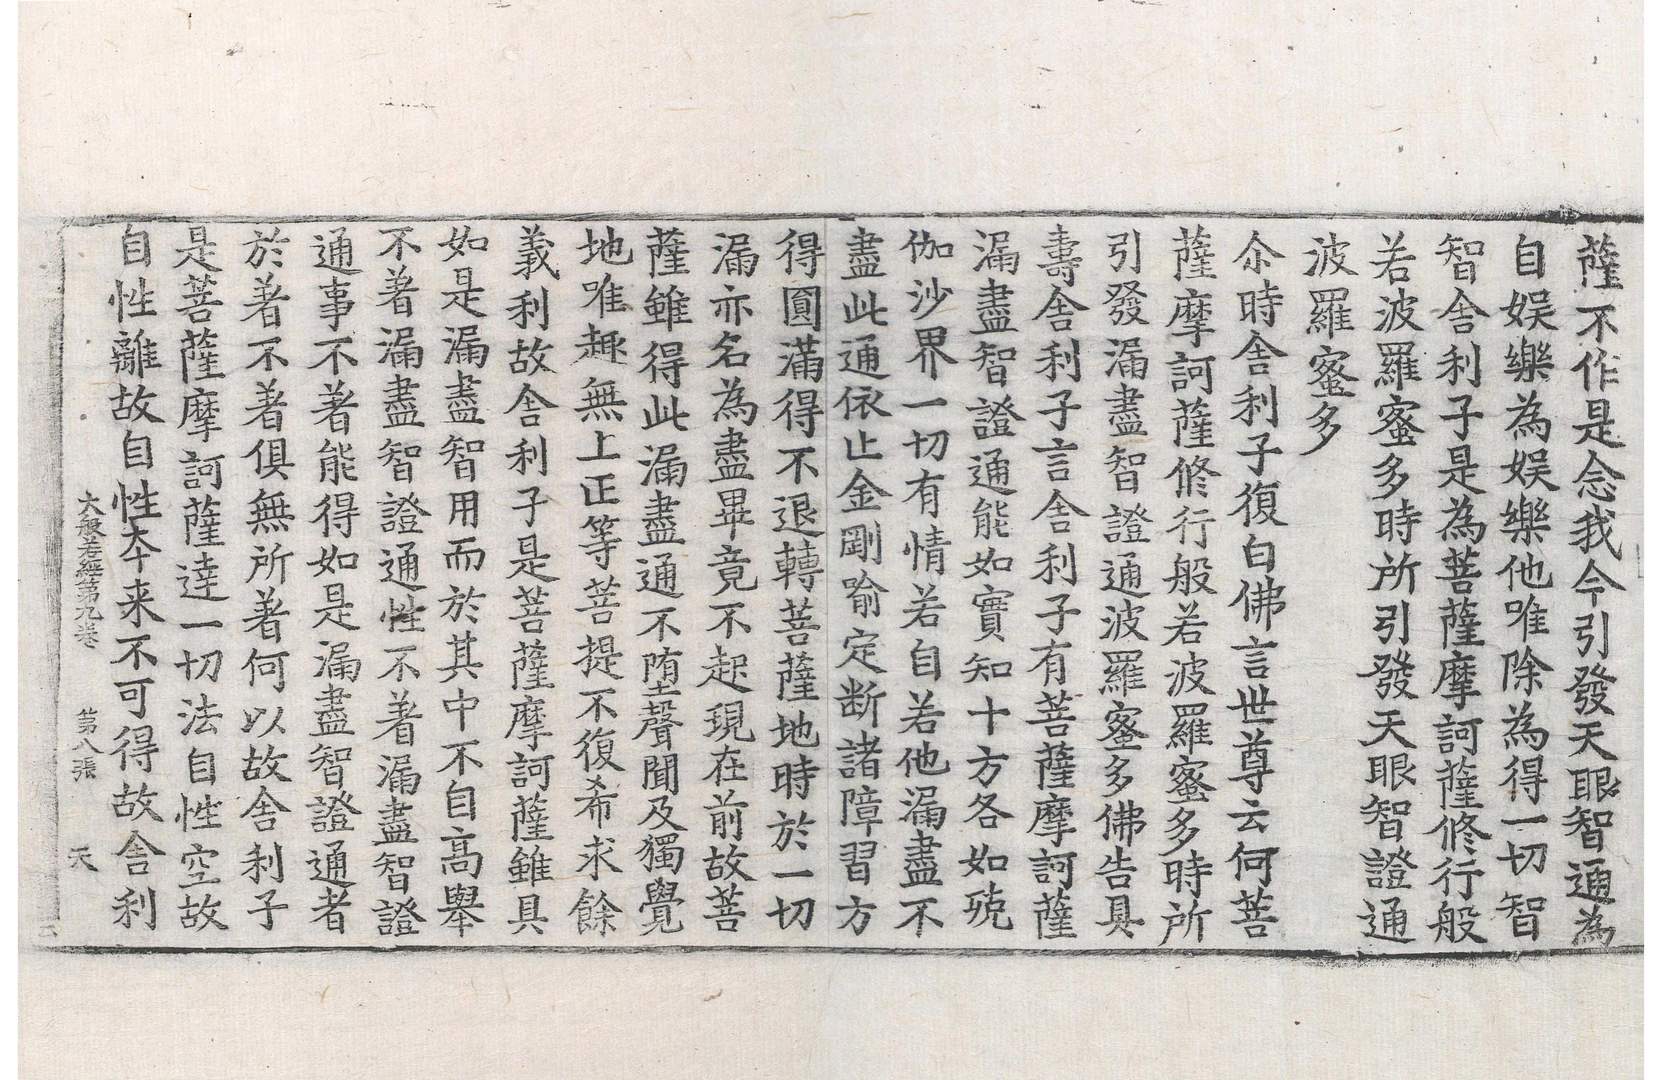 薩不作是念我今引發天眼智通為
自娛樂為娛樂他唯除為得一切智
智舍利子是為菩薩摩訶薩修行般
若波羅蜜多時所引發天眼智證通
波羅蜜多
尒時舍利子復白佛言世尊云何菩
薩摩訶薩修行般若波羅蜜多時所
引發漏盡智證通波羅蜜多佛告具
壽舍利子言舍利子有菩薩摩訶薩
漏盡智證通能如實知十方各如殑
伽沙界一切有情若自若他漏盡不
盡此通依止金剛喻定断諸障習方
得圓滿得不退轉菩薩地時於一切
漏亦名為盡畢竟不起現在前故菩
薩雖得此漏盡通不堕聲聞及獨覺
地唯趣無上正等菩提不復希求餘
義利故舍利子是菩薩摩訶薩雖具
如是漏盡智用而於其中不自高舉
不著漏盡智證通性不著漏盡智證
通事不著能得如是漏盡智證通者
於著不著俱無所著何以故舍利子
是菩薩摩訶薩達一切法自性空故
自性離故自性本来不可得故舍利
大般若經第九卷 第八張 天